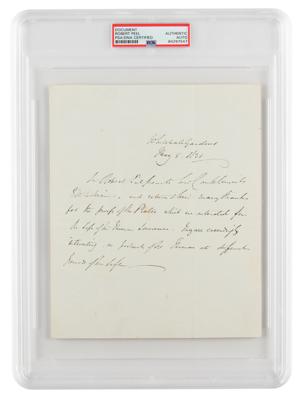 DOCUMENT
ROBERT PEEL
PSA/DNA CERTIFIED
AUTHENTIC
AUTO
Whitehall Gardens
May 8
Sir Robert Peel presents his Compliments
and returns him many thanks
for the proofs of the Plates which are intended for
the Life of Sir Thomas Lawrence.
interesting as portraits of Sir Thomas at different
periods of his Life